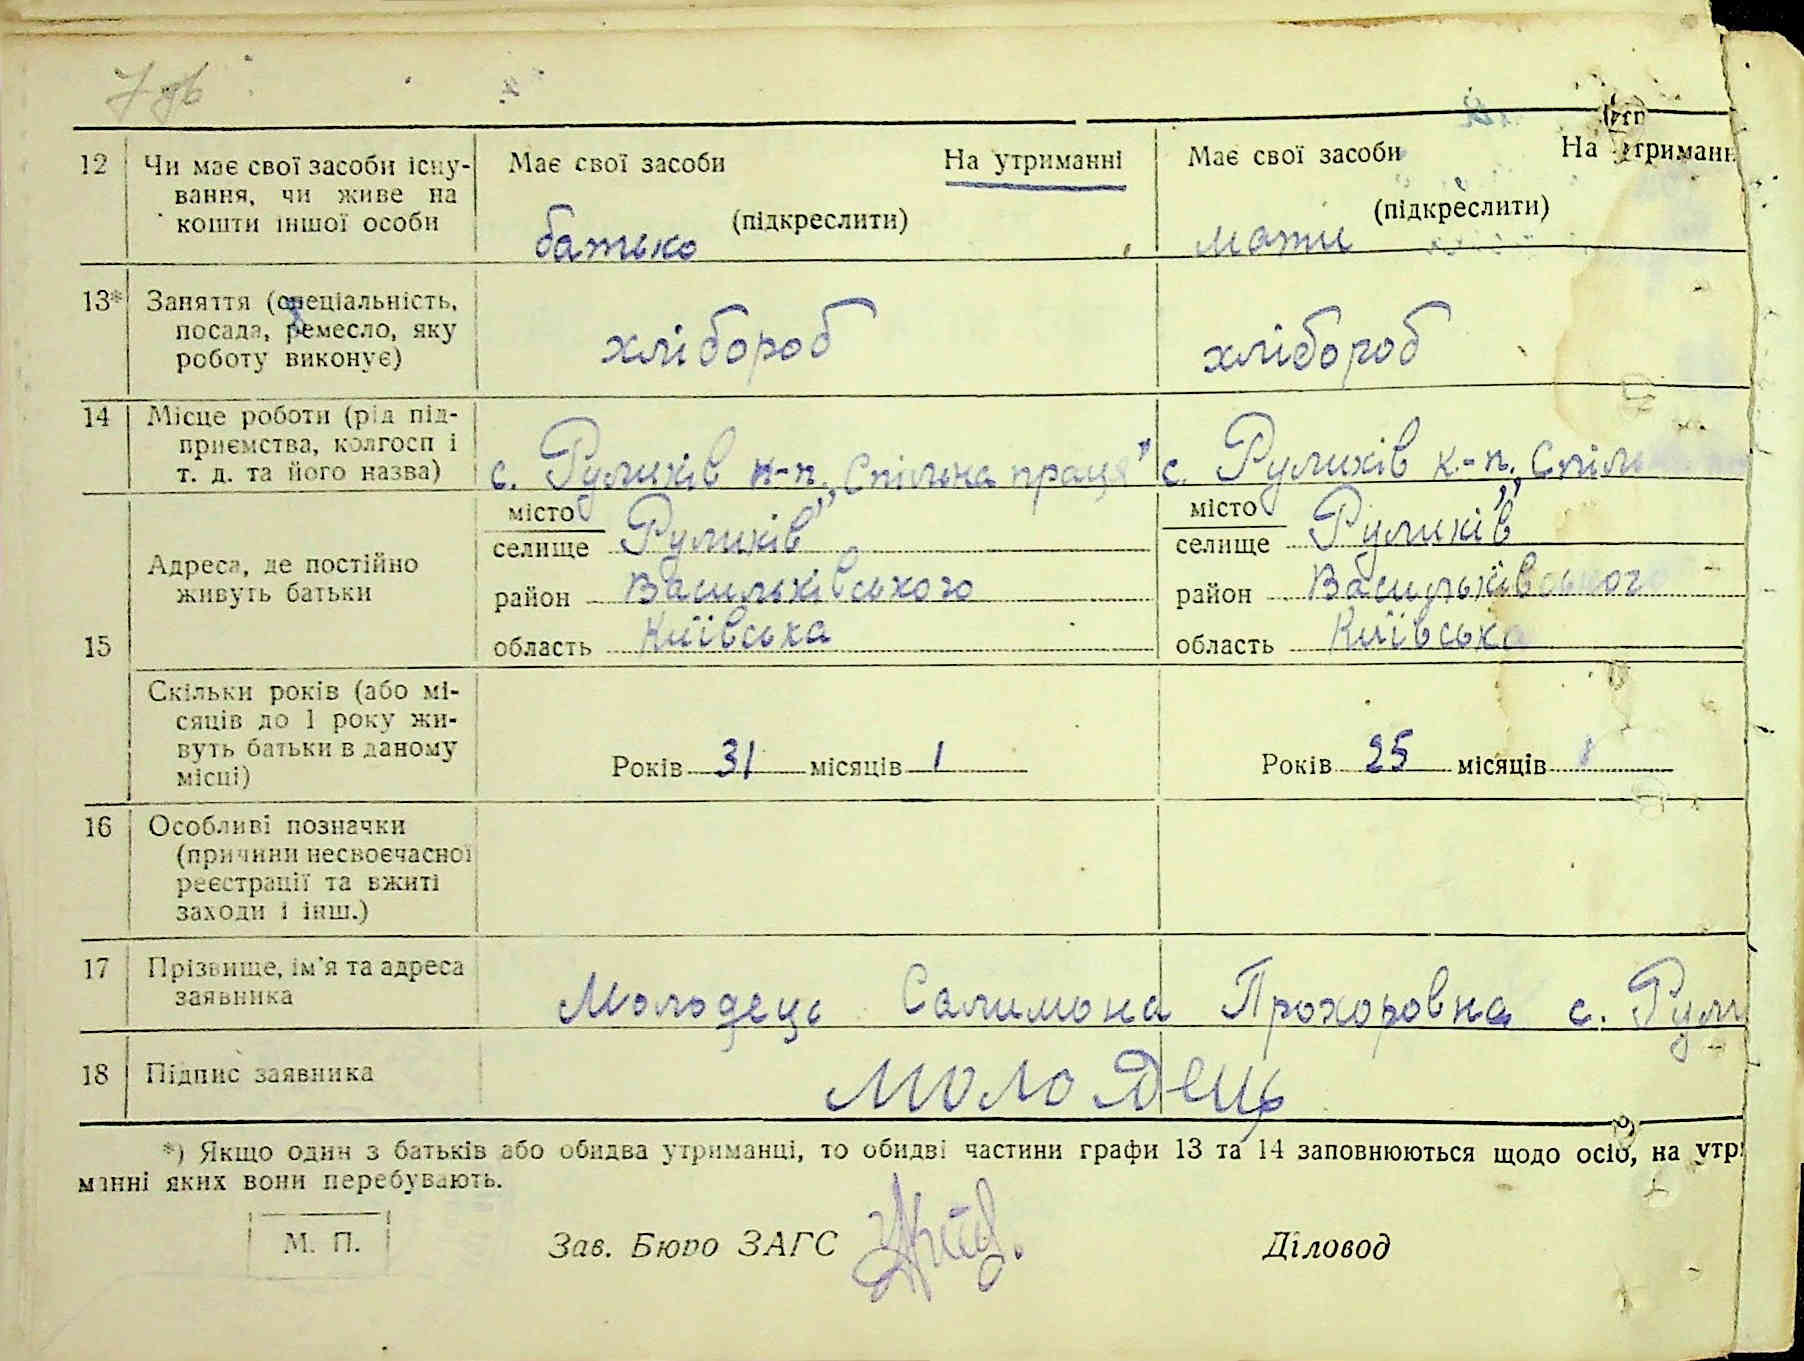 12 Чи має свої засоби існу-
вання, чи живе на
кошти іншої особи
Має свої засоби На утриманні
(підкреслити)
батько
Має свої засоби На
(підкреслити)
мати
13* Заняття (спеціальність,
посада, ремесло, яку
роботу виконує)
хлібороб
хлібороб
14 Місце роботи (рід під-
приємства, колгосп і
т. д. та його назва)
с. Руликів к-п. „Спільна праця"
с. Руликів к-п. „Спіль
15 Адреса, де постійно
живуть батьки
місто
селище Руликів
район Васильківського
область Київська
місто
селище Руликів
район Васильківського
область Київська
Скільки років (або мі-
сяців до 1 року жи-
вуть батьки в даному
місці)
Років 31 місяців 1
Років 25 місяців
16 Особливі позначки
(причини несвоєчасної
реєстрації та вжиті
заходи і інш.)
17 Прізвище, ім'я та адреса
заявника
Молодець Салимона Прохоровна с. Рули
18 Підпис заявника
Молодець
*) Якщо один з батьків або обидва утриманці, то обидві частини графи 13 та 14 заповнюються щодо осіб, на утри
манні яких вони перебувають.
М. П.
Зав. Бюро ЗАГС
Діловод